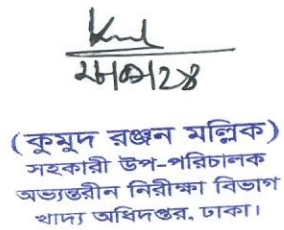 (কুমুদ রঞ্জন মল্লিক)
সহকারী উপ-পরিচালক
অভ্যন্তরীন নিরীক্ষা বিভাগ
খাদ্য অধিদপ্তর, ঢাকা।